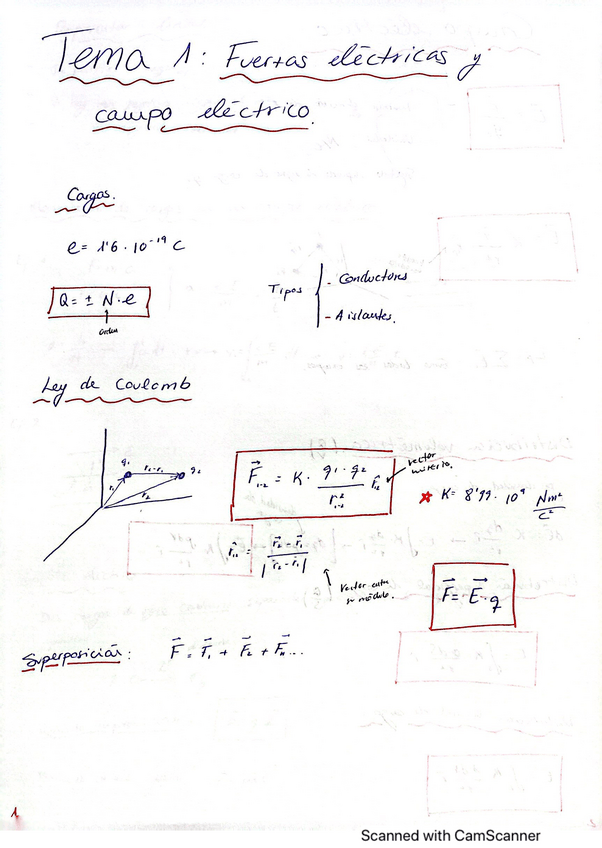 Tema 1: Fuerzas eléctricas y
campo eléctrico.
Cargas.
e = 1'6 · 10⁻¹⁹ C
Q = ± N · e
Tipos
- Conductores
- Aislantes.
Ley de Coulomb
q₁ r₂-r₁ q₂
r₁ r₂
F⃗₁₋₂ = K · q₁ · q₂ / r²₁₋₂ r̂₁₂
vector
K = 8'99 · 10⁹ Nm²/C²
r̂₁₂ = r⃗₂ - r⃗₁ / |r⃗₂ - r⃗₁|
Vector entre
su módulo.
F⃗ = E⃗ · q
Superposición: F⃗ = F⃗₁ + F⃗₂ + F⃗ₙ...
1
Scanned with CamScanner